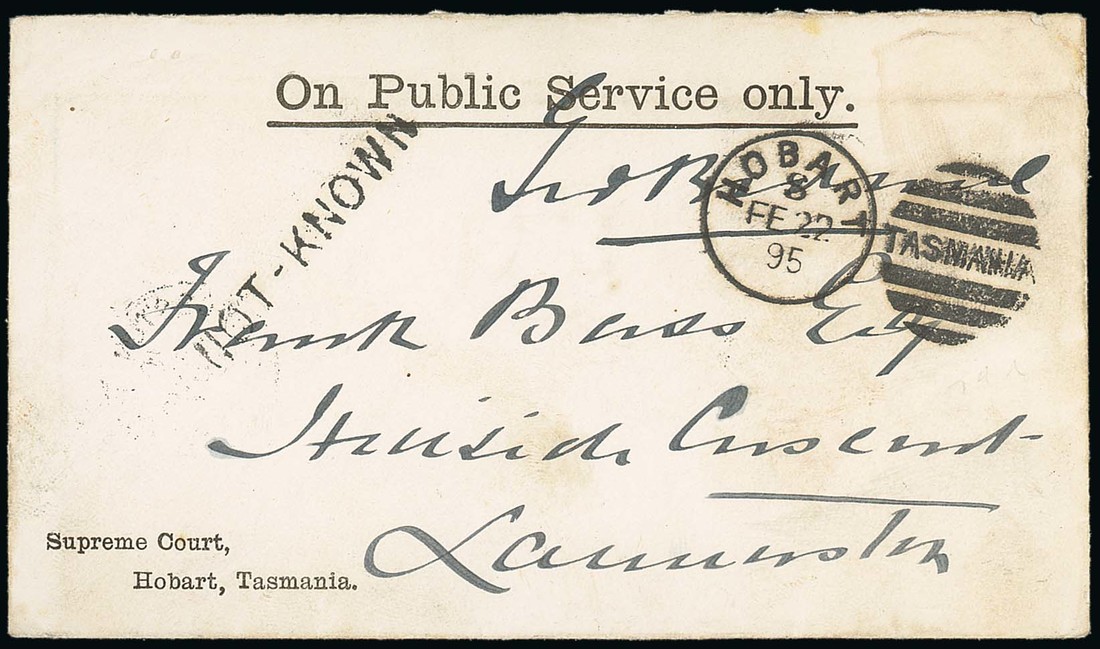 On Public Service only.
NOT-KNOWN
HOBART
8
FE 22
95
TASMANIA
Frank Bass Esq
Hillside Crescent
Launceston
Supreme Court,
Hobart, Tasmania.